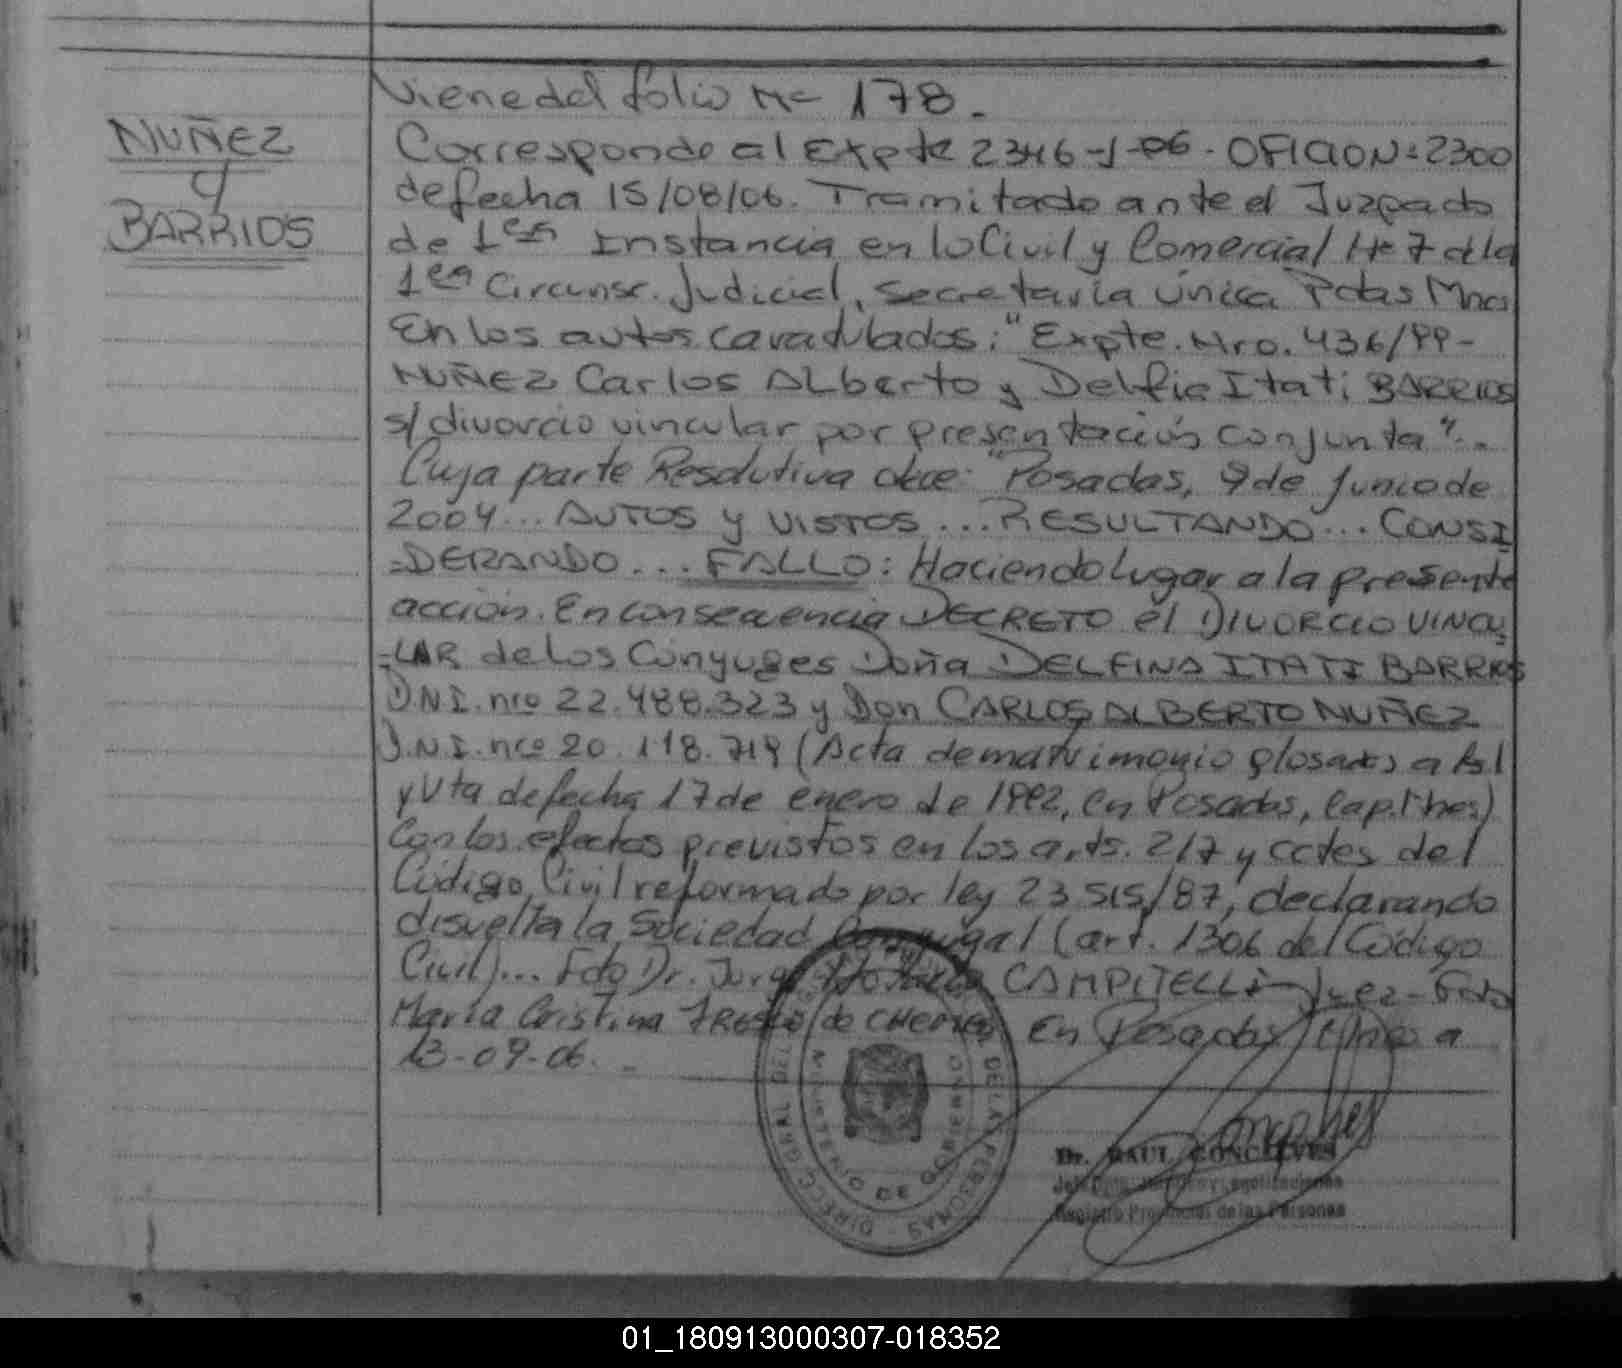 Viene del folio Nº 178.
NUÑEZ
y
BARRIOS
Corresponde al Expte 2346-J-06. OFICIO Nº 2300
de fecha 15/08/06. Tramitado ante el Juzgado
de 1era Instancia en lo Civil y Comercial Nº 7 de la
1era Circunsc. Judicial, Secretaría única Pdas Mnes
En los autos caratulados: "Expte. Nro. 436/99-
NUÑEZ Carlos ALberto y Delfina Itati BARRIOS
s/ divorcio vincular por presentación conjunta"..
Cuya parte Resolutiva dice: "Posadas, 9 de Junio de
2004... AUTOS y VISTOS... RESULTANDO... CONSI
=DERANDO... FALLO: Haciendo lugar a la presente
acción. En consecuencia DECRETO el DIVORCIO VINCU
=LAR de los Cónyuges Doña DELFINA ITATI BARRIOS
D.N.I. nro 22.488.323 y Don CARLOS ALBERTO NUÑEZ
D.N.I. nro 20.118.719 (Acta de matrimonio glosada a fs 1
y Vta de fecha 17 de enero de 1992, en Posadas, Cap. Mnes)
Con los efectos previstos en los arts. 217 y cctes del
Código Civil reformado por ley 23.515/87, declarando
disuelta la Sociedad Conyugal (art. 1306 del Código
Civil)... Fdo Dr. Jorge CAMPITELLI- Juez- Fdo
María Cristina de En Posadas, Mnes a
13-09-06.
DIRECC. GRAL DEL REGISTRO DE LAS PERSONAS
MINISTERIO DE GOBIERNO
Dr. RAUL GONCALVES
Registro Provincial de las Personas
01_180913000307-018352